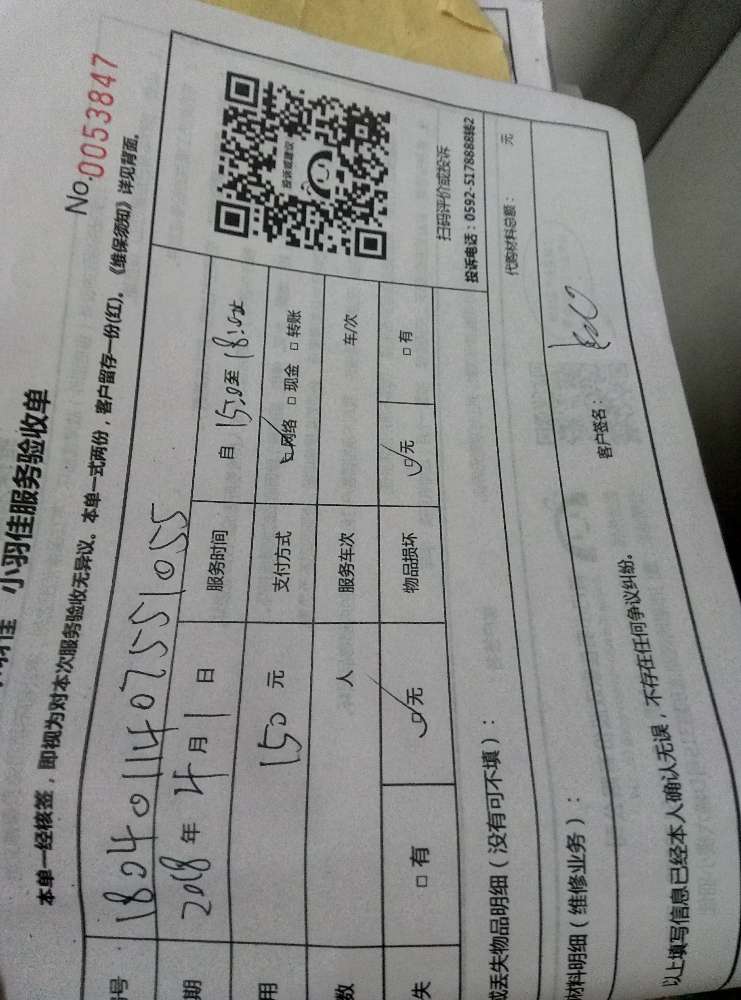 小羽佳服务验收单
No.0053847
本单一经核签，即视为对本次服务验收无异议。本单一式两份，客户留存一份(红)。《维保须知》详见背面。
号 180401140755 1055
期 2018年4月1日 服务时间 自15:0至18:
用 150元 支付方式 ☑网络 □现金 □转账
数 人 服务车次 车/次
失 □有 ☑无 物品损坏 ☑无 □有
投诉或建议
扫码评价或投诉
投诉电话：0592-5178888转2
或丢失物品明细（没有可不填）：
材料明细（维修业务）：
代购材料总额： 元
以上填写信息已经本人确认无误，不存在任何争议纠纷。
客户签名：